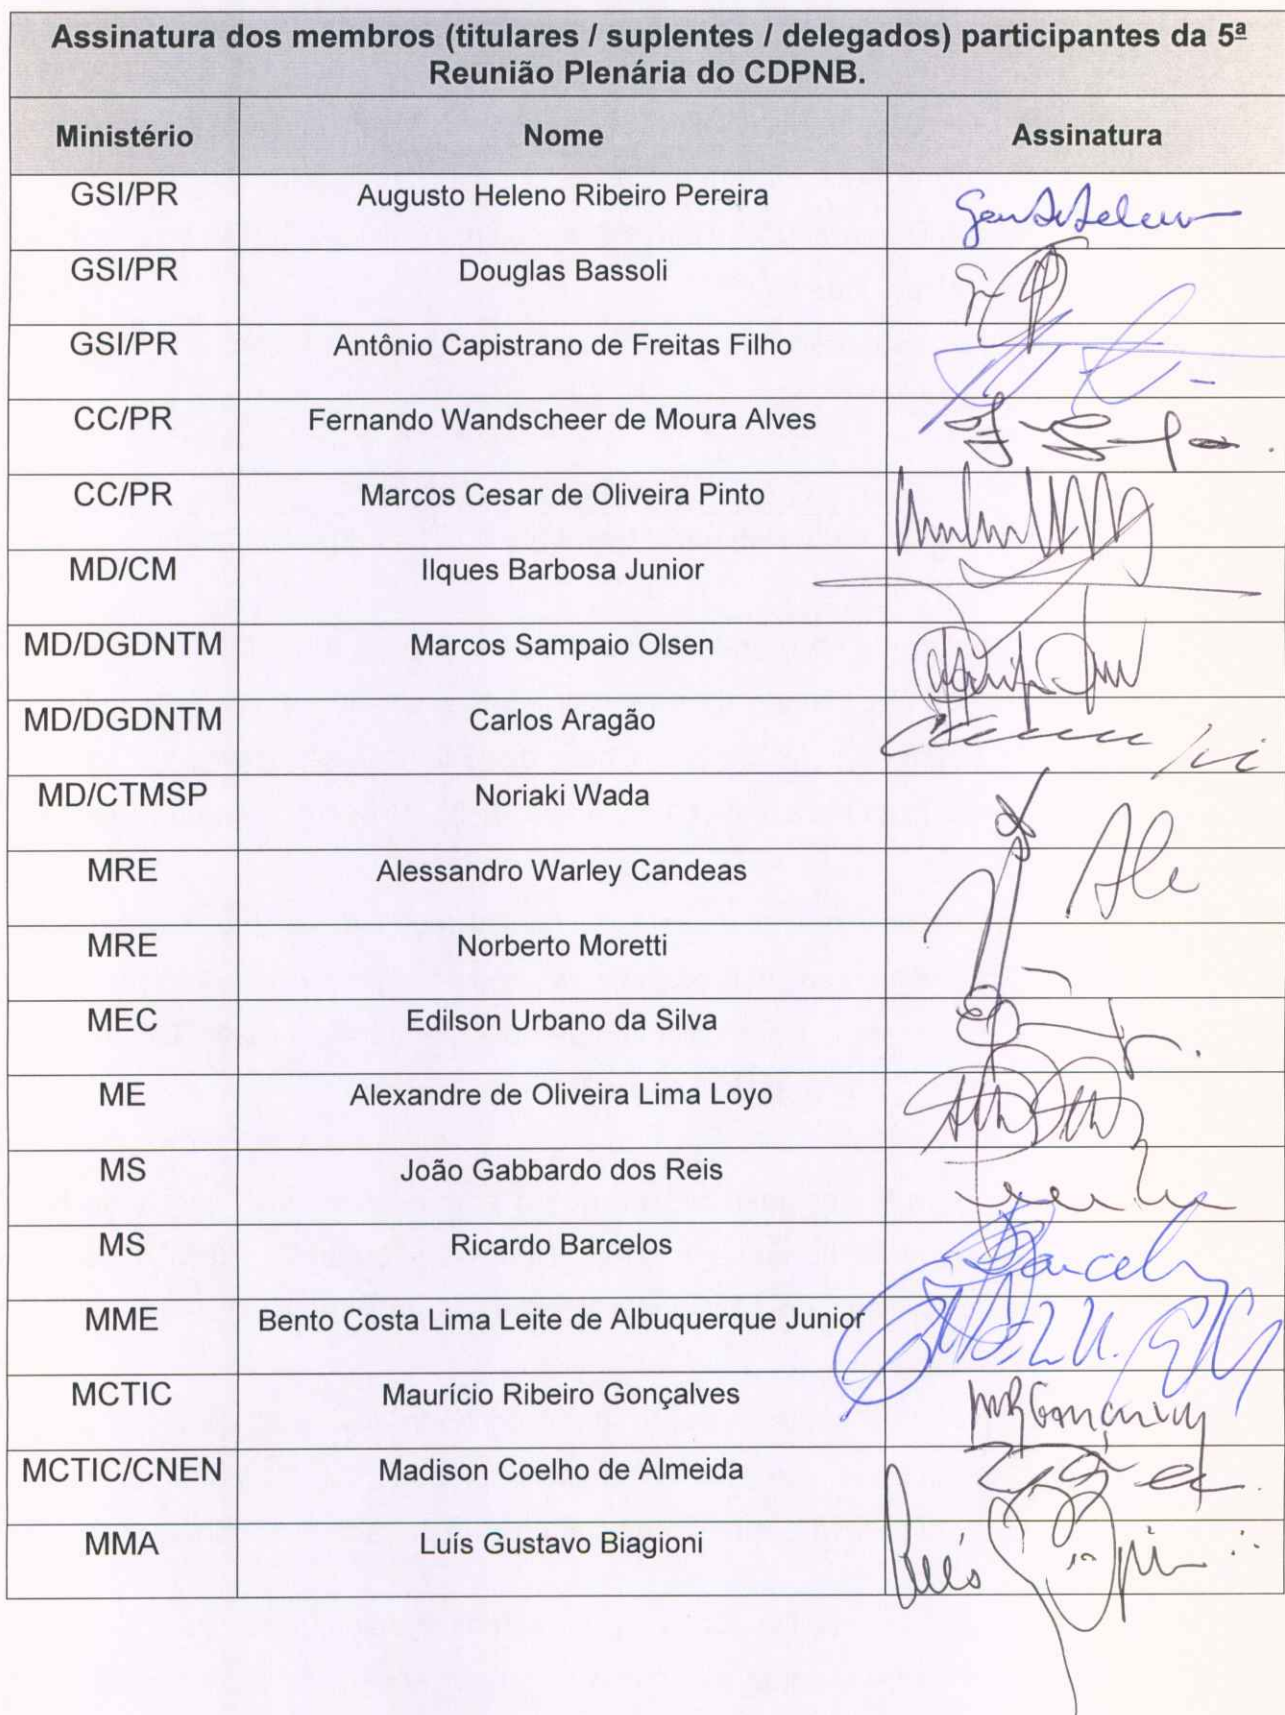 Assinatura dos membros (titulares / suplentes / delegados) participantes da 5ª
Reunião Plenária do CDPNB.
Ministério Nome Assinatura
GSI/PR Augusto Heleno Ribeiro Pereira
GSI/PR Douglas Bassoli
GSI/PR Antônio Capistrano de Freitas Filho
CC/PR Fernando Wandscheer de Moura Alves
CC/PR Marcos Cesar de Oliveira Pinto
MD/CM Ilques Barbosa Junior
MD/DGDNTM Marcos Sampaio Olsen
MD/DGDNTM Carlos Aragão
MD/CTMSP Noriaki Wada
MRE Alessandro Warley Candeas
MRE Norberto Moretti
MEC Edilson Urbano da Silva
ME Alexandre de Oliveira Lima Loyo
MS João Gabbardo dos Reis
MS Ricardo Barcelos
MME Bento Costa Lima Leite de Albuquerque Junior
MCTIC Maurício Ribeiro Gonçalves
MCTIC/CNEN Madison Coelho de Almeida
MMA Luís Gustavo Biagioni